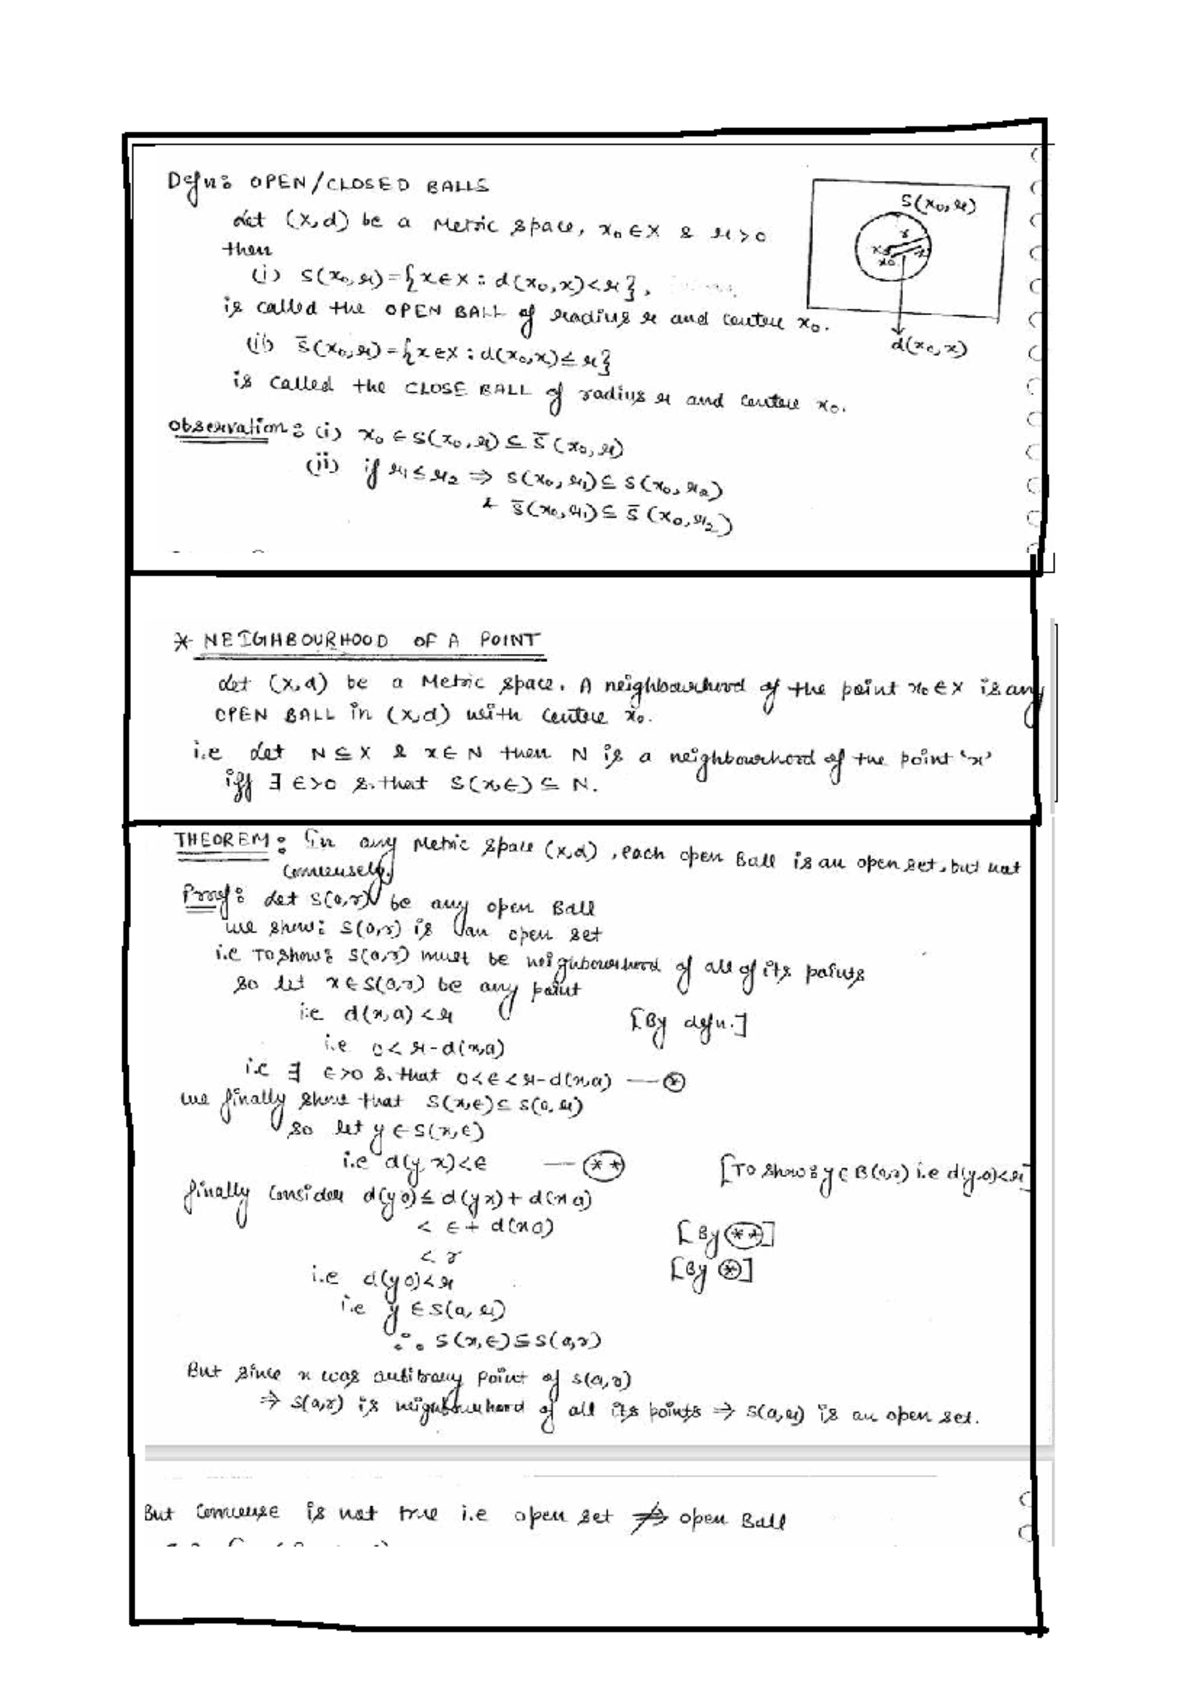 Defn: OPEN/CLOSED BALLS
Let (X,d) be a Metric space, x₀ ∈ X & r > 0
then
(i) S(x₀,r) = {x ∈ X : d(x₀,x) < r},
is called the OPEN BALL of radius r and centre x₀.
(ii) S̄(x₀,r) = {x ∈ X : d(x₀,x) ≤ r}
is called the CLOSE BALL of radius r and centre x₀.
S(x₀,r)
r
x₀
x
d(x₀,x)
Observation: (i) x₀ ∈ S(x₀,r) ⊆ S̄(x₀,r)
(ii) if r₁ ≤ r₂ ⇒ S(x₀,r₁) ⊆ S(x₀,r₂)
& S̄(x₀,r₁) ⊆ S̄(x₀,r₂)
* NEIGHBOURHOOD OF A POINT
Let (X,d) be a Metric space. A neighbourhood of the point x₀ ∈ X is any
OPEN BALL in (X,d) with centre x₀.
i.e Let N ⊆ X & x ∈ N then N is a neighbourhood of the point 'x'
iff ∃ ϵ>0 s.that S(x,ϵ) ⊆ N.
THEOREM: In any Metric space (X,d), each open Ball is an open set, but not
Conversely.
Proof: Let S(a,r) be any open Ball
we show: S(a,r) is an open set
i.e To show: S(a,r) must be neighbourhood of all of its points
So let x ∈ S(a,r) be any point
i.e d(x,a) < r [By defn.]
i.e 0 < r-d(x,a)
i.e ∃ ϵ>0 s.that 0<ϵ<r-d(x,a) —(*)
we finally show that S(x,ϵ) ⊆ S(a,r)
So let y ∈ S(x,ϵ)
i.e d(y,x)<ϵ —(**) [To show: y ∈ B(a,r) i.e d(y,a)<r]
finally Consider d(y a) ≤ d(y x) + d(x a)
< ϵ + d(x a) [By (**)]
< r [By (*)]
i.e d(y a)<r
i.e y ∈ S(a,r)
∴ S(x,ϵ) ⊆ S(a,r)
But since x was arbitrary point of S(a,r)
⇒ S(a,r) is neighbourhood of all its points ⇒ S(a,r) is an open set.
But Converse is not true i.e open set ⇏ open Ball